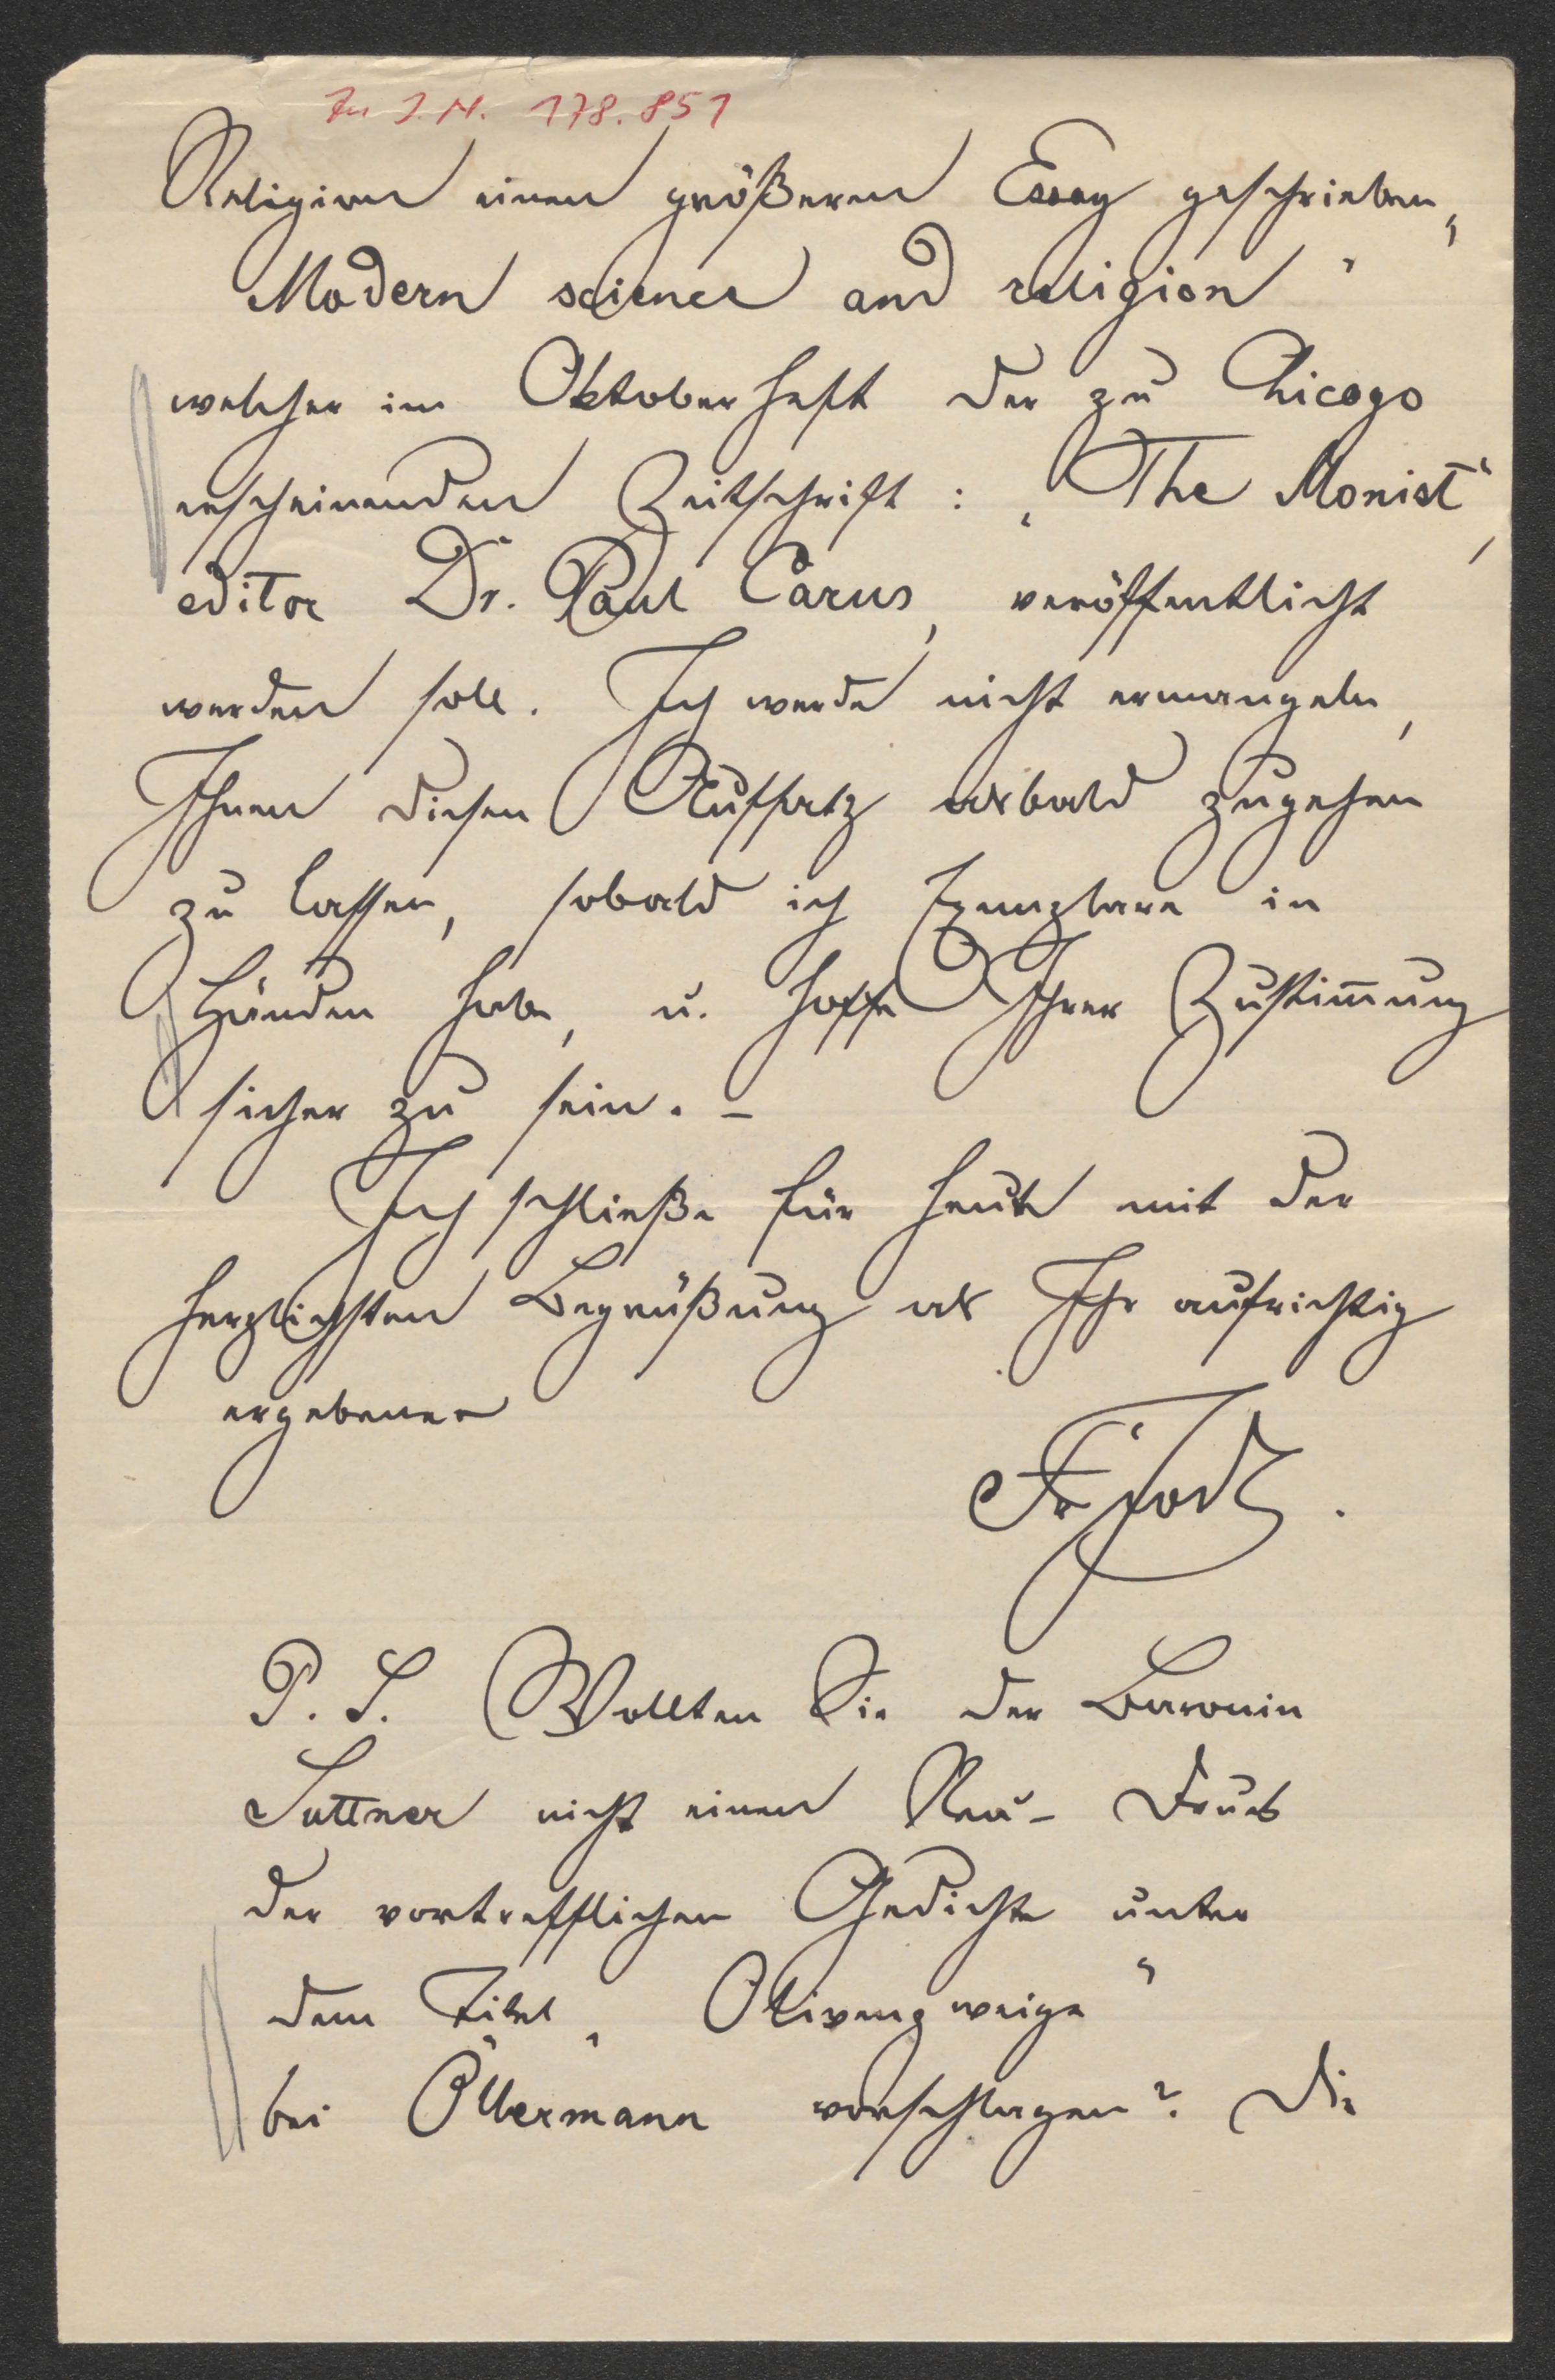 Zu I.N. 178.851
Religion einen größeren Essay geschrieben „
Modern science and religion“
welcher im Oktoberheft der zu Chicago
erscheinenden Zeitschrift: „The Monist“,
editor Dr. Paul Carus, veröffentlicht
werden soll. Ich werde nicht ermangeln,
Ihnen diesen Aufsatz alsbald zugehen
zu lassen, sobald ich Exemplare in
Händen habe, u. hoffe Ihrer Zustim̄ung
sicher zu sein. –
Ich schließe für heute mit der
herzlichsten Begrüßung als Ihr aufrichtig
ergebener
Fr Jodl.
P. S. Wollten Sie der Baronin
Suttner nicht einen Neu-Druck
der vortrefflichen Gedichte unter
dem Titel „Olivenzweige“
bei Öllermann vorschlagen? Die